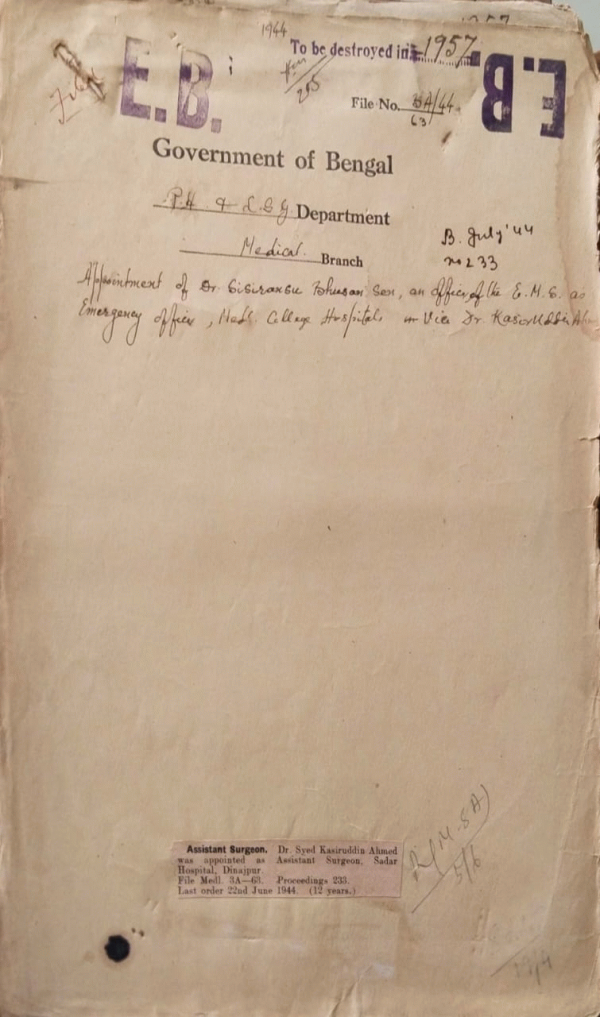 1944
To be destroyed in 1957
E.B.
E.B.
File
File No. 3A/44
63
Government of Bengal
P.H. & L.S.G Department
Medical Branch
B. July '44
no 233
Appointment of Dr. Sisiransu Bhusan Sen, an officer of the E.M.S. as
Emergency officer, Medl. College Hospitals Vice Dr. Kasiruddin
Assistant Surgeon. Dr. Syed Kasiruddin Ahmed
was appointed as Assistant Surgeon, Sadar
Hospital, Dinajpur.
File Medl. 3A—63. Proceedings 233.
Last order 22nd June 1944. (12 years.)
5/6